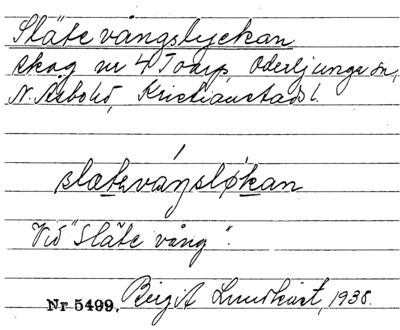 Släte vångslyckan
skog nr 4 Toarp, Oderljunga sn,
N. Åsbohd, Kristianstads l.
slæteváŋsløkan
Vid "Släte vång".
Nr 5499. Birgit Lundkvist, 1938.